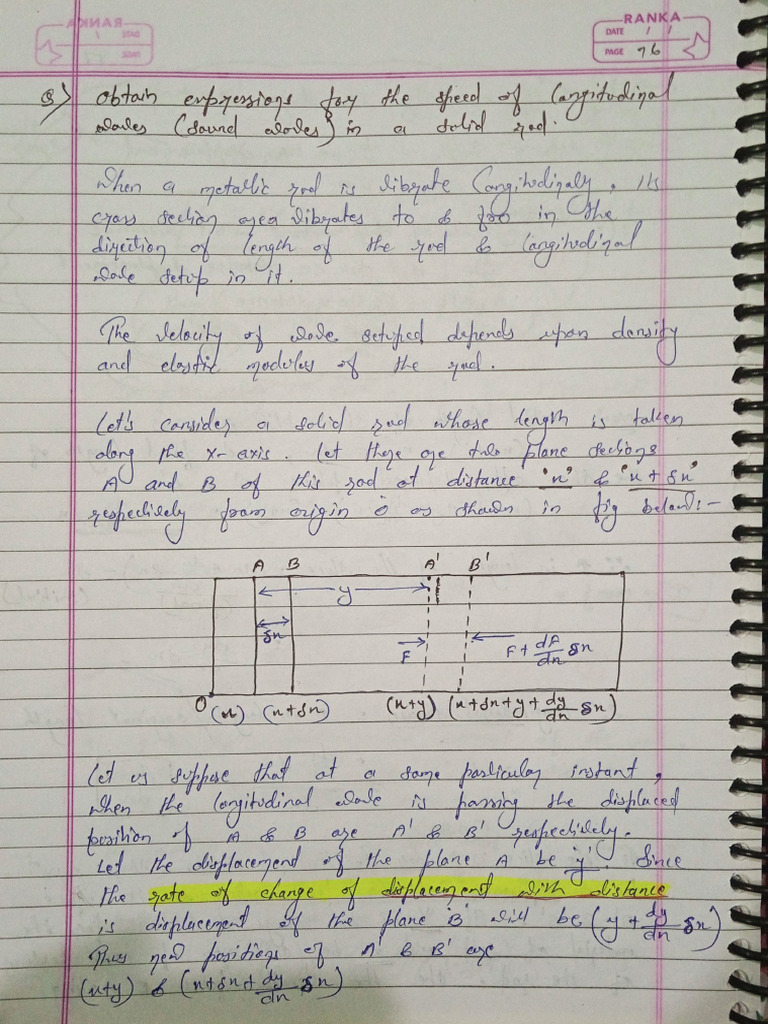 RANKA
DATE / /
PAGE 76
Q) Obtain expressions for the speed of Longitudinal
waves (sound waves) in a solid rod.
When a metallic rod is vibrate longitudinaly, its
cross section area vibrates to & fro in the
direction of length of the rod & longitudinal
wave setup in it.
The velocity of wave setuped depends upon density
and elastic modulus of the rod.
Let's consider a solid rod whose length is taken
along the X-axis. Let there are two plane sections
A and B of this rod at distance 'x' & 'x + δx'
respectively from origin 'o' as shown in fig below:-
A B A' B'
y
δx F F + dF/dx δx
O (x) (x+δx) (x+y) (x+δx+y+dy/dx δx)
Let us suppose that at a some particular instant,
when the longitudinal wave is passing the displaced
position of A & B are A' & B' respectively.
Let the displacement of the plane A be 'y'. Since
the rate of change of displacement with distance
is displacement of the plane B will be (y + dy/dx δx)
Thus new positions of A' & B' are
(x+y) & (x+δx+dy/dx δx)